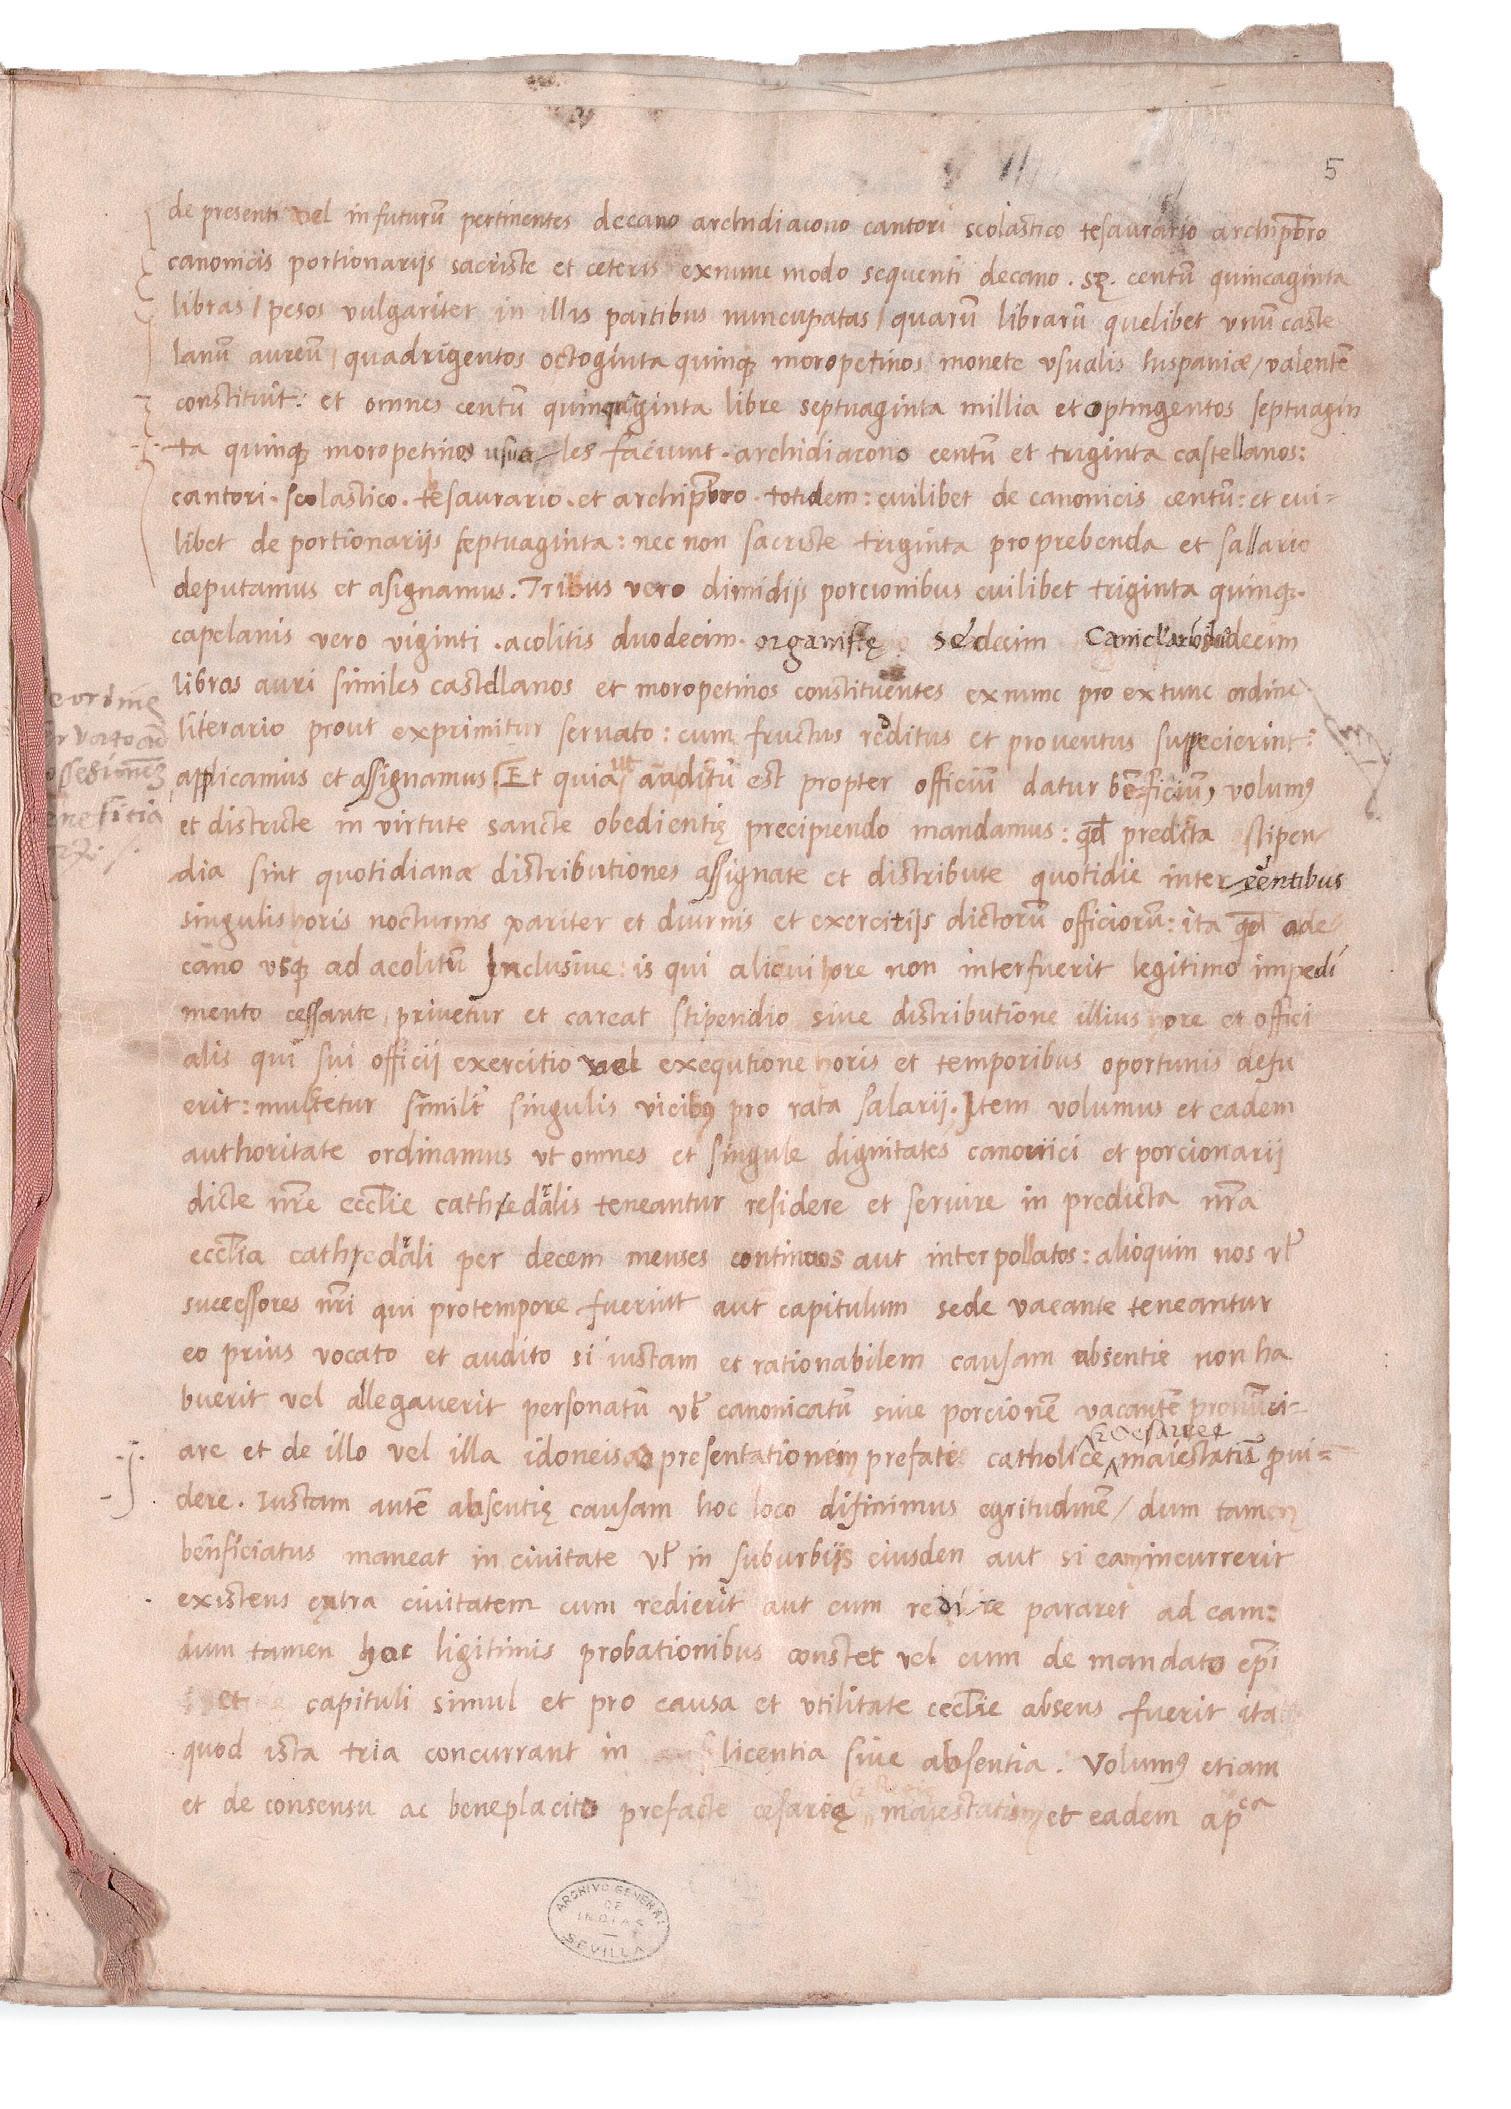 5
de presenti vel in futurū pertinentes decano archidiacono cantori scolastico tesaurario archipb̄ro
canonicis portionarijs sacriste et ceteris ex nunc modo sequenti decano . sȩ. centū quincaginta
libras / pesos vulgariter in illis partibus nuncupatas / quarū librarū quelibet vnū caste
lanū aureū / quadrigentos octoginta quinqȝ moropetinos monete vsualis hispaniæ / valentē
constituit: et omnes centū quinquaginta libre septuaginta millia et optingentos septuagin
ta quinqȝ moropetinos usua les faciunt . archidiacono centū et triginta castellanos:
cantori . scolastico . tesaurario . et archipb̄ro . totidem : cuilibet de canonicis centū: et cui=
libet de portionarijs septuaginta : nec non sacriste triginta pro prebenda et sallario
deputamus et asignamus . Tribus vero dimidijs porcionibus cuilibet triginta quinqȝ.
capelanis vero viginti . acolitis duodecim . organistȩ sedecim decim
libras auri similes castellanos et moropetinos constituentes ex nunc pro ex tunc ordine
literario prout exprimitur seruato : cum fructus redditus et prouentus suppecierint:
applicamus et assignamus. Et quia ut auditū est propter officiū datur bēficiū, volumꝰ
et districte in virtute sancte obedientiȩ precipiendo mandamus : qđ predicta stipen
dia sint quotidianæ distributiones assignate et distribute quotidie inter entibus
singulis horis nocturnis pariter et diurnis et exercitijs dictorū officiorū : ita qđ a de
cano vsqȝ ad acolitū Inclusiue : is qui alicui hore non interfuerit legitimo impedi
mento cessante, priuetur et careat stipendio siue distributione illius hore et offici
alis qui sui officij exercitio vel exequtione horis et temporibus oportunis defu
erit : multetur similr̄ singulis vicibꝰ pro rata salarij . Item volumus et eadem
authoritate ordinamus vt omnes et singule dignitates canonici et porcionarij
dicte nr̄e eccłie cathedralis teneantur residere et seruire in predicta nr̄a
eccłia cathedrali per decem menses continuos aut interpollatos : alioquin nos vł
successores nr̄i qui pro tempore fuerint aut capitulum sede vacante teneantur
eo prius vocato et audito si iustam et rationabilem causam absentie non ha
buerit vel allegauerit personatū vł canonicatū siue porcionē vacantē pronūci=
are et de illo vel illa idoneis presentationem prefate catholice & cesaree maiestatis ꝓui=
dere . Iustam autē absentiȩ causam hoc loco difinimus egritudinē / dum tamen
bēnficiatus maneat in ciuitate vł in suburbijs eiusden aut si eam incurrerit
existens extra ciuitatem cum redierit aut cum redire pararet ad eam:
dum tamen hoc ligitimis probationibus constet vel cum de mandato ep̄i
et capituli simul et pro causa et vtilitate eccłie absens fuerit ita
quod ista tria concurrant in licentia siue absentia . Volumꝰ etiam
et de consensu ac beneplacito prefacte cesariȩ maiestatis et eadem apᶜᵃ
ARCHIVO GENERAL
DE
INDIAS
SEVILLA